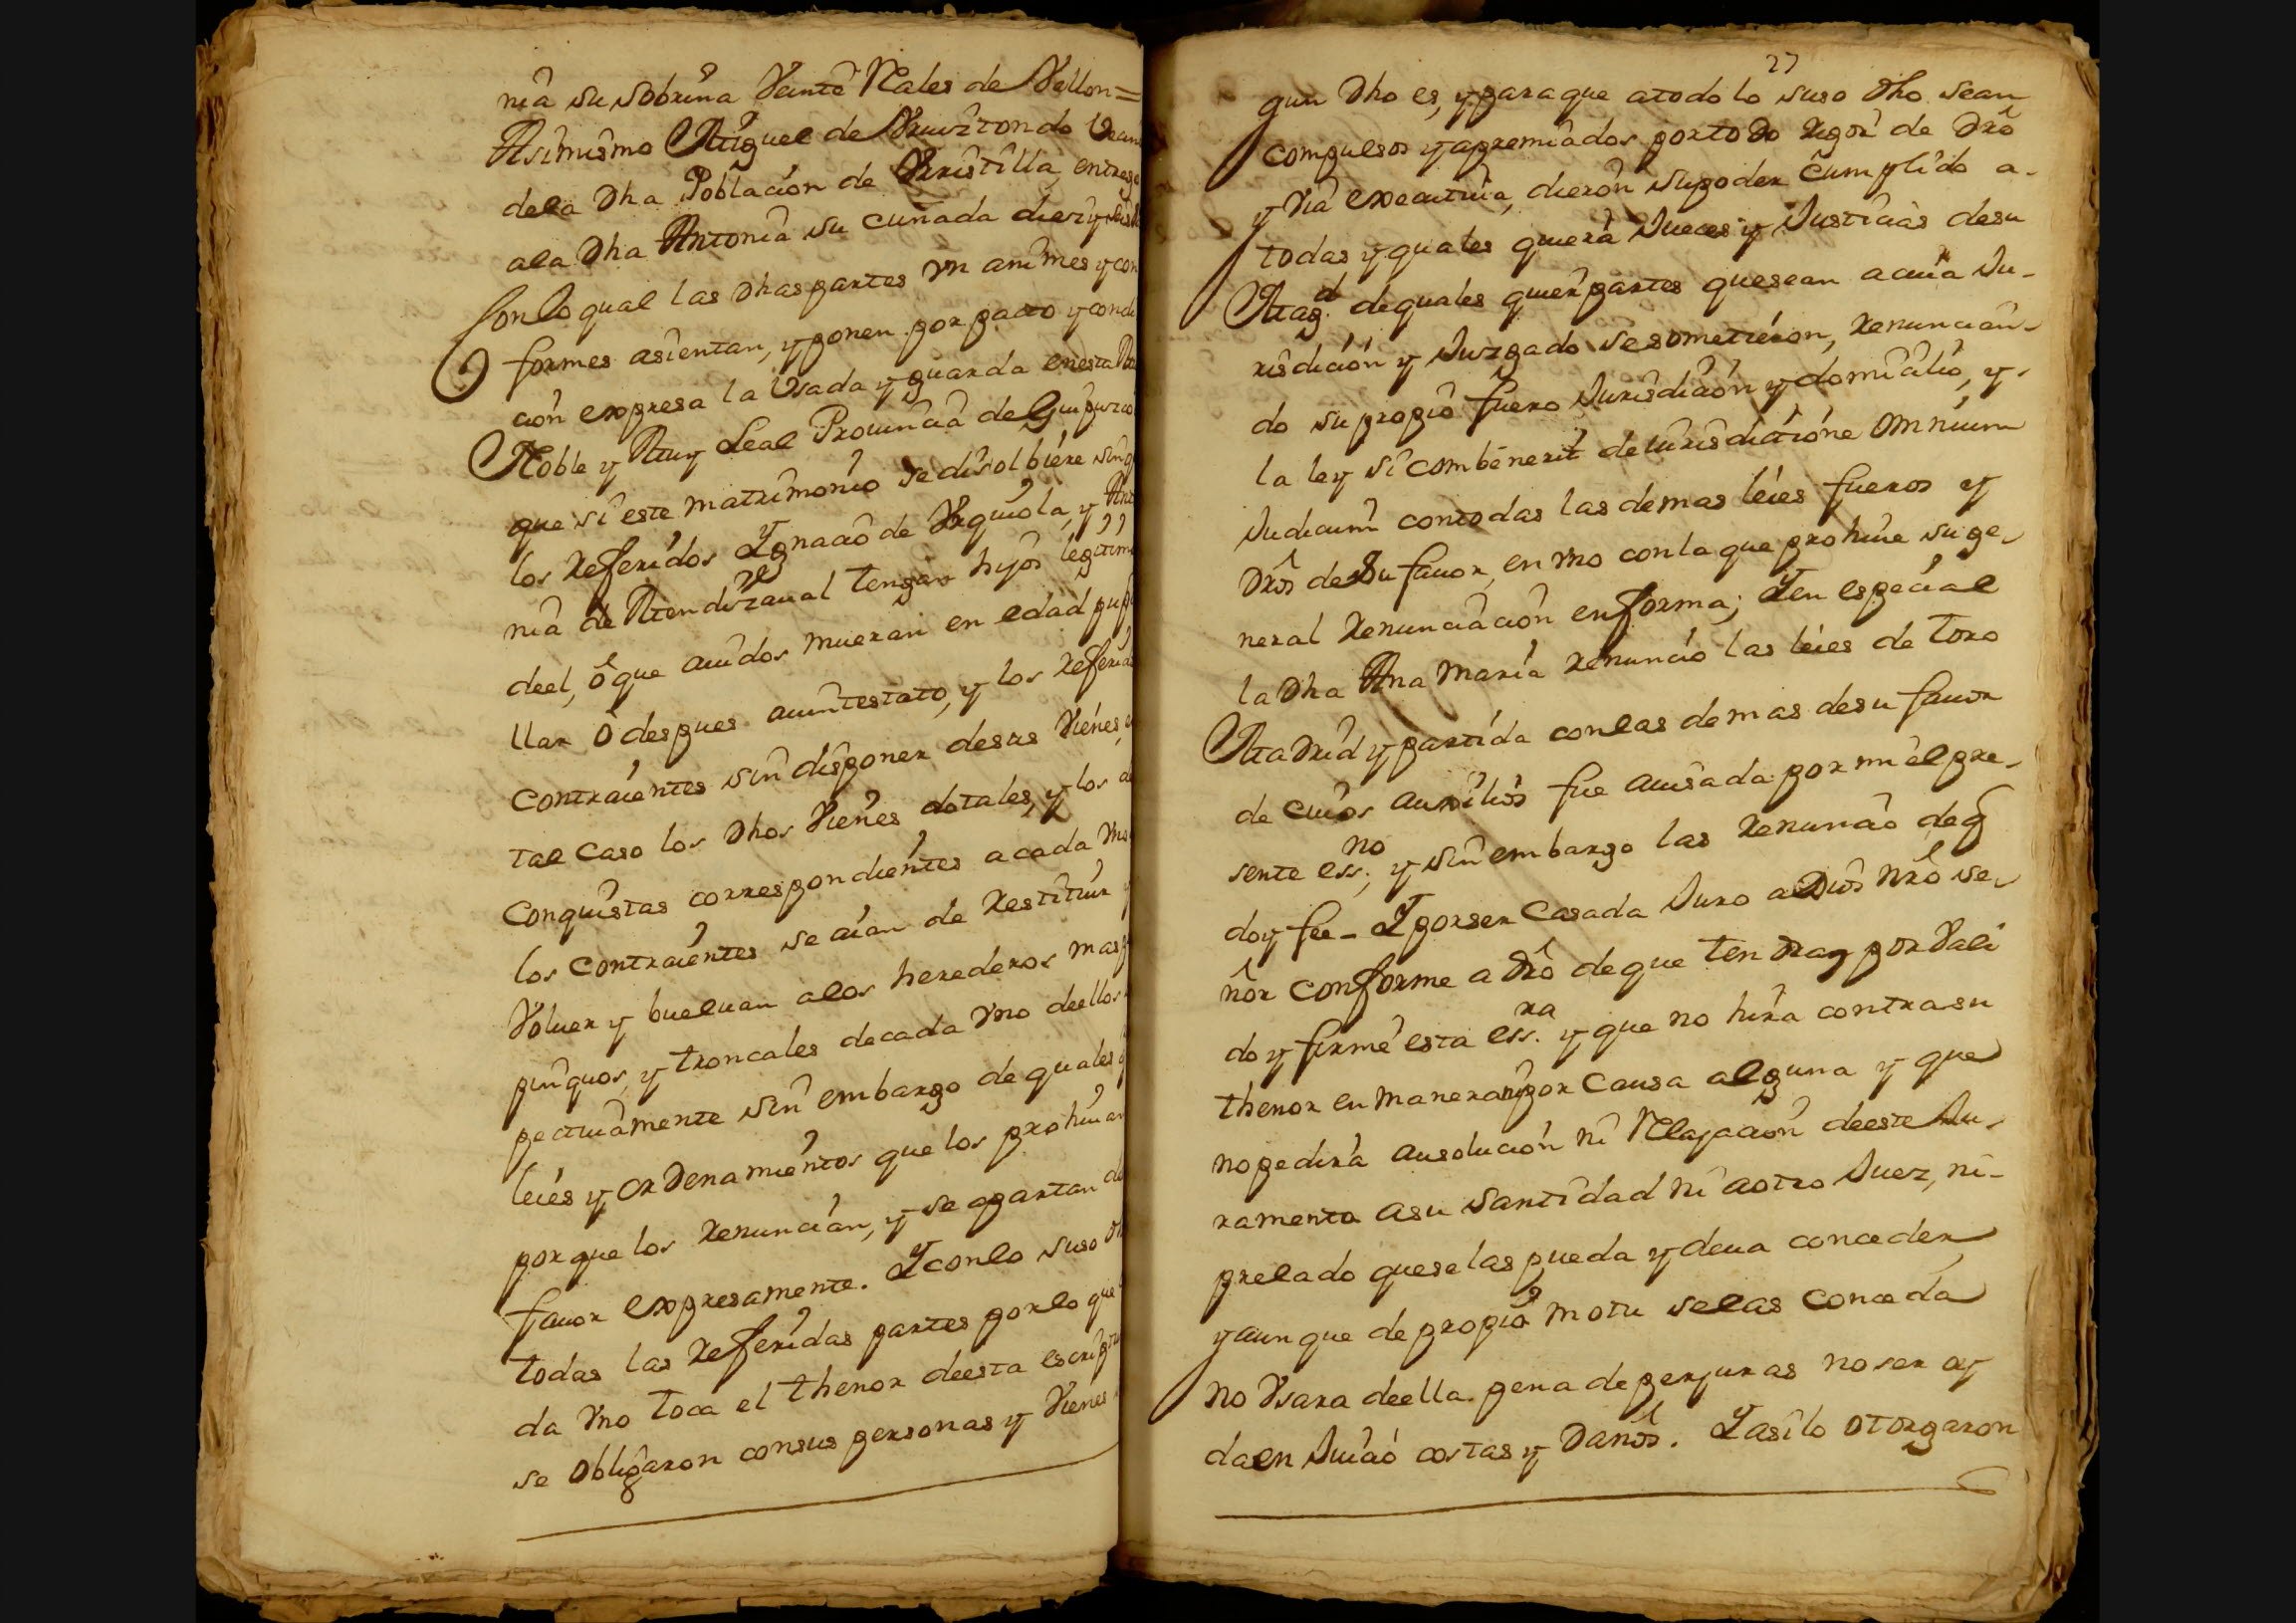 nia su sobrina Veinte Reales de Vellon=
Asimismo Miguel de
dela Dha Poblacion de Urristilla, entrego
ala Dha Antonia su cuñada diez y seis
Con lo qual las Dhas partes vnanimes y con
formes asientan, y ponen por pacto y condi
cion expresa la Vsada y guarda enesta
Noble y Muy Leal Prouincia de Guipuzcoa
que si este matrimonio se disolbiere sin q
los Referidos Ygnacio de Vrquiola, y Anto
nia de Mendizaual tengan hijos legitim
deel, ô que auidos mueran en edad pupi
llar ô despues auintestato, y los Referid
contraientes sin disponer desus Vienes, e
tal caso los Dhos Vienes dotales, y los de
Conquistas correspondientes acada vno
los contraientes se aian de Restituir y
Voluer y bueluan alos herederos mas p
pinquos, y troncales decada vno deellos
pectiuamente sin embargo de quales q
leies y ordenamientos que los prohiuan
porque los Renuncian, y se apartan de
fauor expresamente. Y conlo suso Dh
todas las Referidas partes porlo que
da vno toca el thenor deesta escriptu
se obligaron consus personas y Vienes
27
gun Dho es, y paraque atodo lo suso Dho sean
compulsos y apremiados portodo Rigor de Dro
y via executiua, dieron supoder cumplido a-
todas y quales quiera Jueces y Justicias desu
Mag.d dequales quier partes quesean acuia Ju-
risdicion y Juzgado sesometieron, Renuncian-
do su propio fuero Jurisdicion y domicilio, y-
la ley si combenerit de iurisdictione omnium
Judicum contodas las demas leies fueros y
Dros desu fauor, en vno conla que prohiue suge-
neral Renunciacion enforma; Y en especial
la Dha Ana Maria Renunció las leies de toro
Madrid y partida conlas demas desu fauor
de cuios auxilios fue auisada por mi el pre-
sente ess.no, y sin embargo las Renuncio deq
doy fee - Y porser Casada Juro aDios Nro se-
ñor conforme a Dro deque tendra por Vali
do y firme esta ess.ra y que no hira contrasu
thenor en manera ni por Causa alguna y que
nopedira ausolucion ni Relajacion deeste Ju-
ramento asu Santidad ni aotro Juez, ni-
prelado queselas pueda y deua conceder
y aunque de propio motu selas conceda
no Vsara deella pena de perjuras no ser oy
da en Juicio costas y Daños. Y asi lo otorgaron